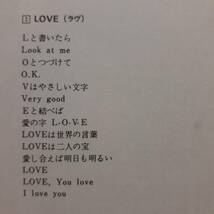 1 LOVE (ラヴ)
Lと書いたら
Look at me
Oとつづけて
O.K.
Vはやさしい文字
Very good
Eと結べば
愛の字 L-O-V-E
LOVEは世界の言葉
LOVEは二人の宝
愛し合えば明日も明るい
LOVE
LOVE, You love
I love you